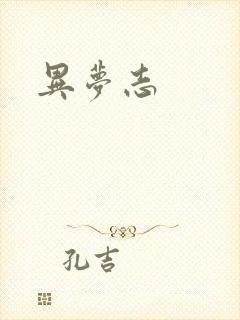 異夢志
孔吉